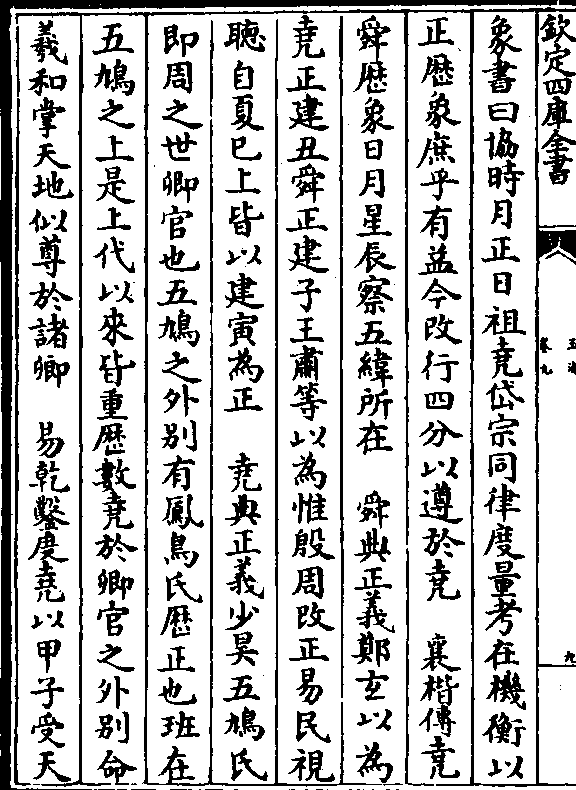 欽定四庫全書
玉海
卷九
九
象書曰協時月正日祖堯岱宗同律度量考在機衡以
正歴象庶乎有益今改行四分以遵於堯　襄楷傳堯
舜歴象日月星辰察五緯所在　舜典正義鄭玄以為
堯正建丑舜正建子王肅等以為惟殷周改正易民視
聴自夏已上皆以建寅為正　堯典正義少昊五鳩氏
即周之世卿官也五鳩之外别有鳳鳥氏歴正也班在
五鳩之上是上代以來皆重歴數堯於卿官之外别命
羲和掌天地似尊於諸卿　易乾鑿度堯以甲子受天